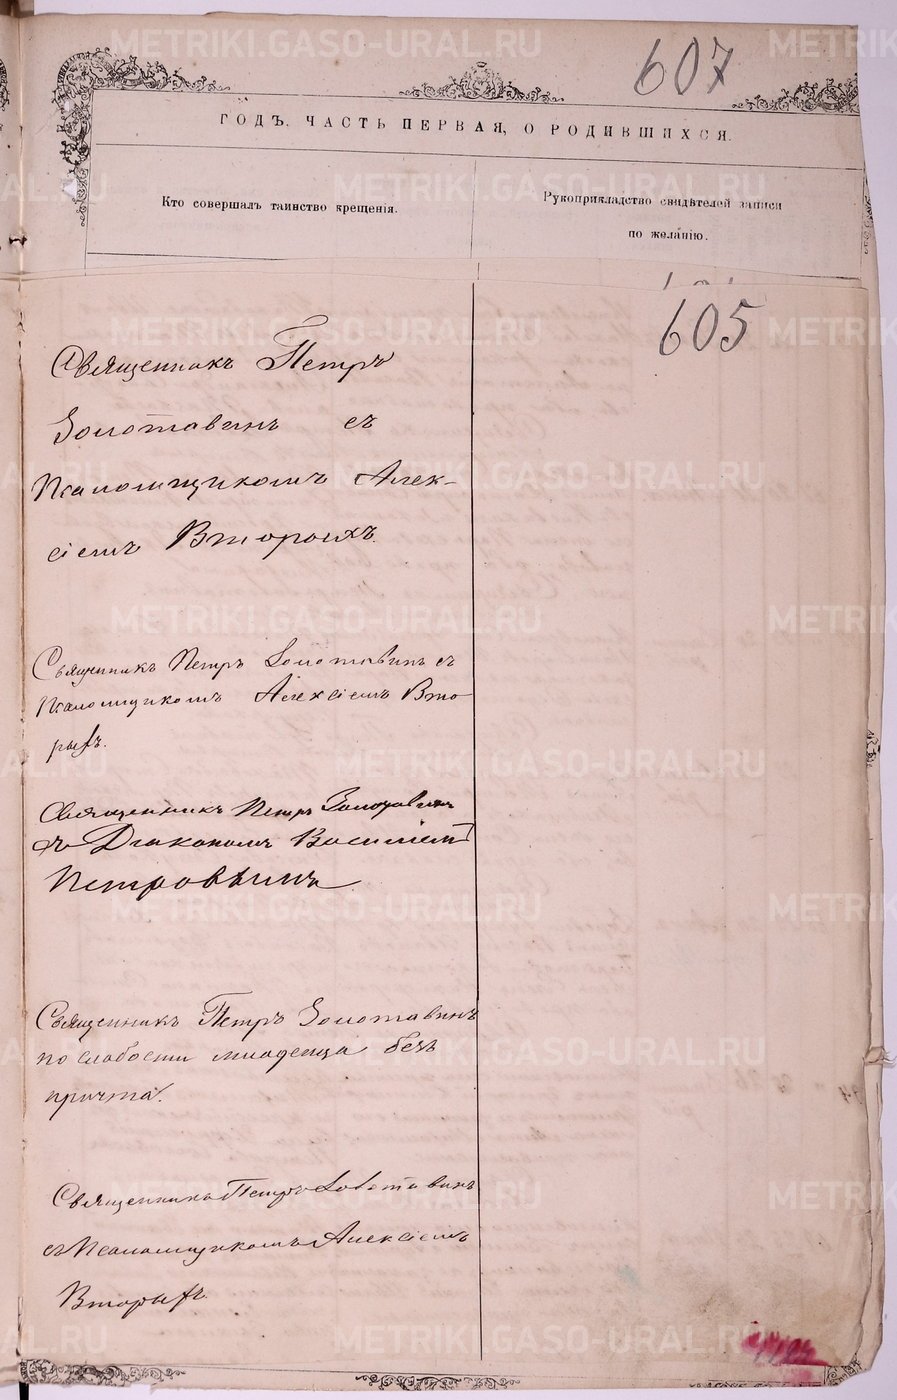 607
ГОДЪ. ЧАСТЬ ПЕРВАЯ, О РОДИВШИХСЯ.
Кто совершалъ таинство крещенія.
Рукоприкладство свидѣтелей записи
по желанію.
605
Священникъ Петръ
Золотавинъ съ
Псаломщикомъ Алек-
сіемъ Вторыхъ.
Священникъ Петръ Золотавинъ съ
Псаломщикомъ Алексіемъ Вто-
рыхъ.
Священникъ Петръ Золотавинъ
съ Діакономъ Василіем
Петровымъ
Священникъ Петръ Золотавинъ
по слабости младенца безъ
причта.
Священникъ Петръ Золотавинъ
съ Псаломщикомъ Алексіемъ
Вторыхъ
METRIKI.GASO-URAL.RU